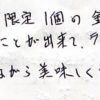 限定1個の
ことが出来て、ラ
がら美味しく